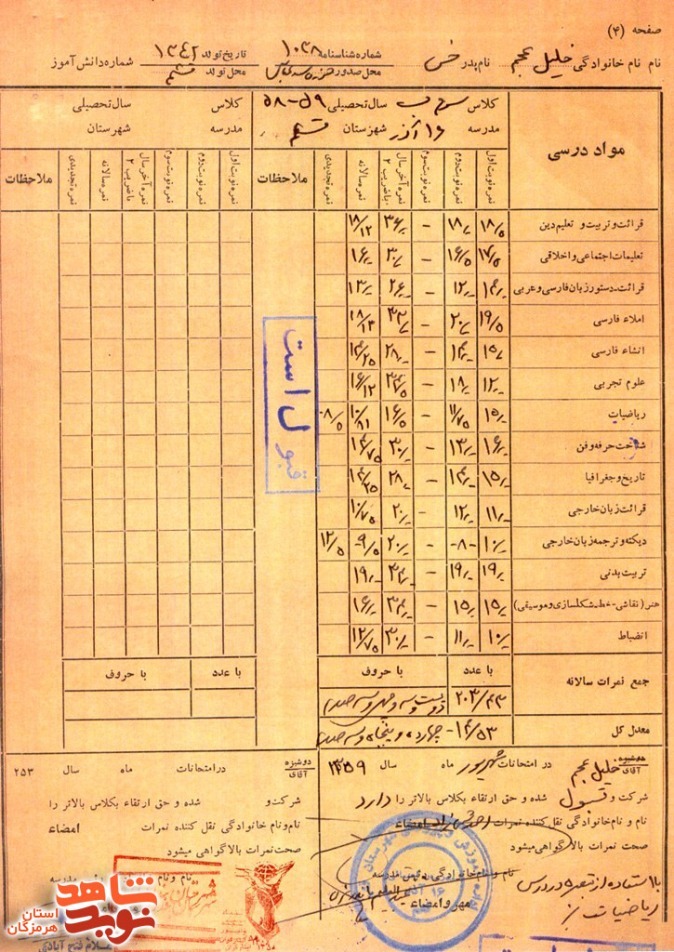 صفحه (۴)
نام نام خانوادگی خلیل عجم نام پدر شماره شناسنامه ۱۰۳۸ تاریخ تولد ۱۳۴۲ شماره دانش آموز
محل صدور محل تولد قشم
کلاس سوم ب سال تحصیلی ۵۹-۵۸ کلاس سال تحصیلی
مدرسه ۱۶ آذر شهرستان قشم مدرسه شهرستان
مواد درسی نمره نوبت اول نمره نوبت دوم نمره نوبت سوم نمره آخر سال با ضریب ۲ نمره سالانه نمره تجدیدی ملاحظات نمره نوبت اول نمره نوبت دوم نمره نوبت سوم نمره آخر سال با ضریب ۲ نمره سالانه نمره تجدیدی ملاحظات
قرائت و تربیت و تعلیم دین ۱۸/۵ ۱۸/ - ۳۶/ ۱۸/۱۲
تعلیمات اجتماعی و اخلاقی ۱۷/۵ ۱۶/۵ - ۳۰/ ۱۶/
قرائت دستور زبان فارسی و عربی ۱۴/ ۱۲/ - ۲۶/ ۱۳/
املاء فارسی ۱۹/۵ ۲۰/ - ۱۸/۱۳
انشاء فارسی ۱۵/ ۱۴/ - ۲۸/ ۱۴/۲۵
علوم تجربی ۱۲/ ۱۸/ - ۱۶/۱۲
ریاضیات ۱۵/ ۱۱/۷۵ - ۱۶/۵ ۱۰/۸۱ ۰۸/۵
شناخت حرفه و فن ۱۶/ ۱۳/ - ۳۰/ ۱۴/۷۵
تاریخ و جغرافیا ۱۵/ ۱۴/ - ۲۸/ ۱۴/۲۵
قرائت زبان خارجی ۱۱/ ۱۲/ - ۲۰/ ۱۰/۷۵
دیکته و ترجمه زبان خارجی ۱۰/ -۸- - ۲۰/ ۹/۵ ۱۲/۵
تربیت بدنی ۱۹/ ۱۹/ - ۱۹/
هنر (نقاشی - خط - شکلسازی و موسیقی) ۱۵/ ۱۵/ - ۳۴/ ۱۶/
انضباط ۱۰/ ۱۱/ - ۳۰/ ۱۲/۷۵
قبول است
با عدد با حروف با عدد با حروف
جمع نمرات سالانه ۲۰۳/۴۳ دویست و سه و چهل و سه صدم
معدل کل ۱۴/۵۳- چهارده و پنجاه و سه صدم
دوشیزه آقای خلیل عجم در امتحانات شهریور ماه سال ۱۳۵۹
شرکت و قبول شده و حق ارتقاء بکلاس بالاتر را دارد
نام و نام خانوادگی نقل کننده نمرات امضاء
صحت نمرات بالا گواهی میشود
نام و نام خانوادگی رئیس مدرسه
مهر و امضاء
با استفاده از تبصره در درس
ریاضیات
دوشیزه آقای در امتحانات ماه سال ۲۵۳
شرکت و شده و حق ارتقاء بکلاس بالاتر را
نام و نام خانوادگی نقل کننده نمرات امضاء
صحت نمرات بالا گواهی میشود
نوید شاهد
استان هرمزگان